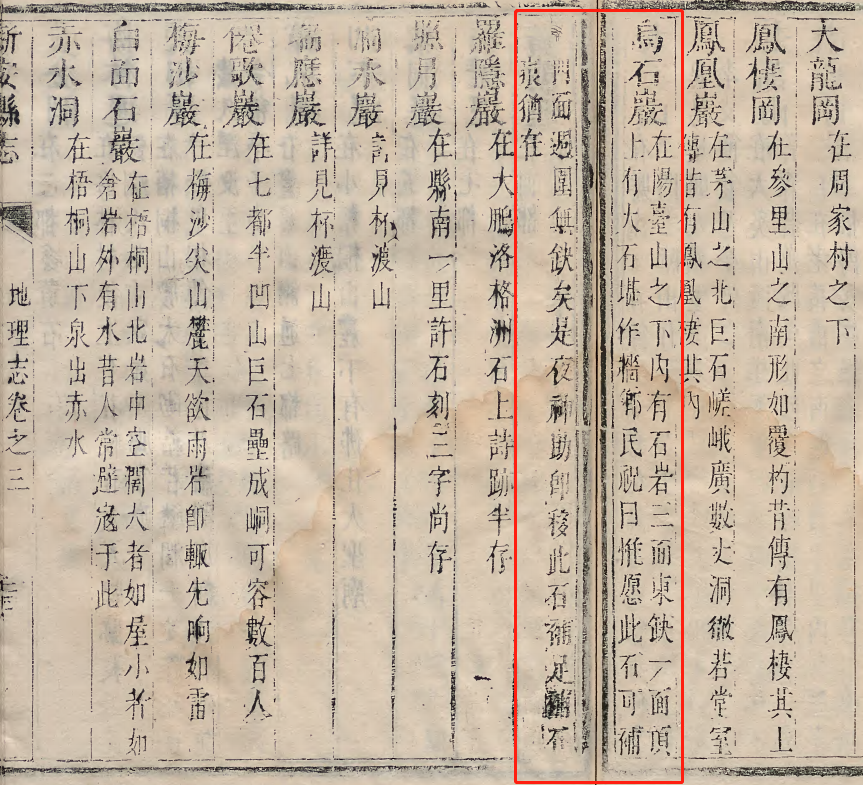 大龍岡在周家村之下
鳳棲岡在參里山之南形如覆杓昔傳有鳳棲其上
鳳凰巖在茅山之北巨石嵯峨廣數丈洞徹若堂室
傳昔有鳳凰棲其內
烏石巖在陽臺山之下內有石岩三面東缺一面頂
上有大石堪作牆鄉民祝曰惟愿此石可補
四面週圍無缺矣是夜神助卽移此石補足
痕猶在
羅隱巖在大鵬洛格洲石上詩跡半存
照月巖在縣南一里許石刻三字尚存
滴水巖詳見杯渡山
瑞應巖詳見杯渡山
僊歌巖在七都半凹山巨石壘成峒可容數百人
梅沙巖在梅沙尖山麓天欲雨岩卽輒先响如雷
白面石巖在梧桐山北岩中空濶大者如屋小者如
倉岩外有水昔人常避寇于此
赤水洞在梧桐山下泉出赤水
新安縣志
地理志卷之三